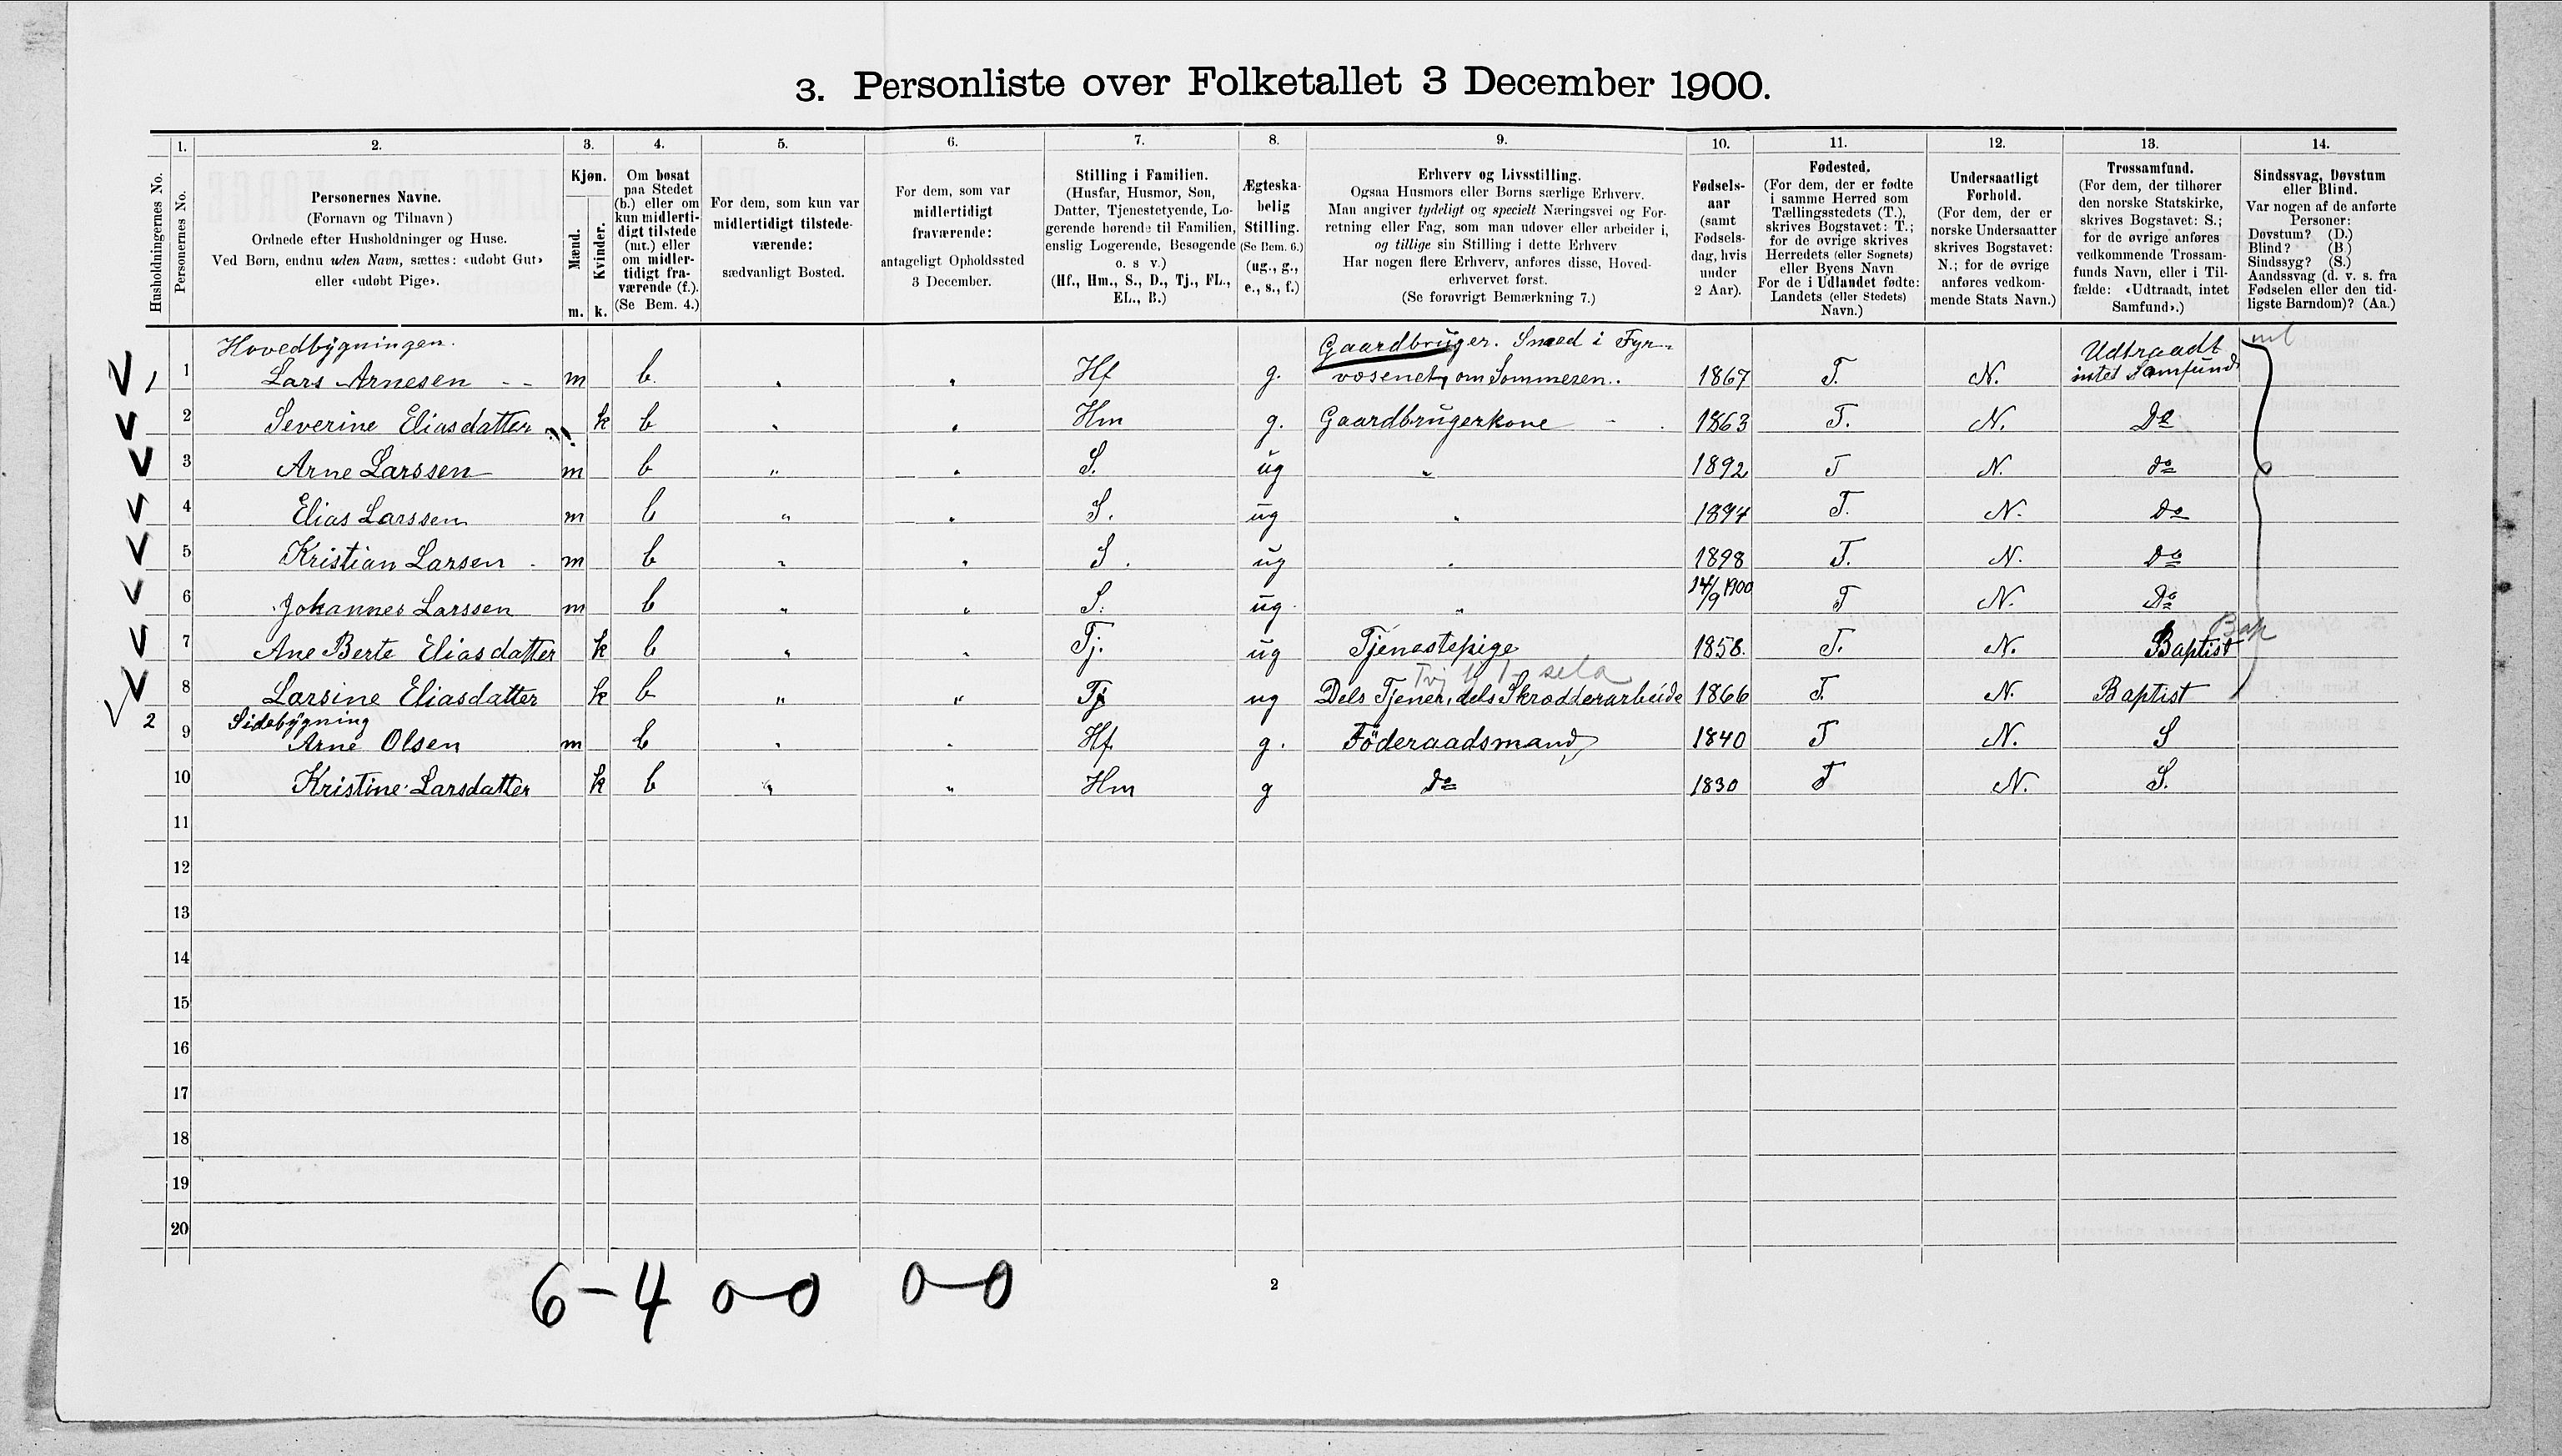 3. Personliste over Folketallet 3 December 1900.
Husholdningernes No.
1.
Personernes No.
2.
Personernes Navne.
(Fornavn og Tilnavn)
Ordnede efter Husholdninger og Huse.
Ved Børn, endnu uden Navn, sættes: «udøbt Gut»
eller «udøbt Pige».
3.
Kjøn.
Mænd.
Kvinder.
m. k.
4.
Om bosat
paa Stedet
(b.) eller om
kun midlerti-
digt tilstede
(mt.) eller
om midler-
tidigt fra-
værende (f.).
(Se Bem. 4.)
5.
For dem, som kun var
midlertidigt tilstede-
værende:
sædvanligt Bosted.
6.
For dem, som var
midlertidigt
fraværende:
antageligt Opholdssted
3 December.
7.
Stilling i Familien.
(Husfar, Husmor, Søn,
Datter, Tjenestetyende, Lo-
gerende hørende til Familien,
enslig Logerende, Besøgende
o. s v.)
(Hf., Hm., S., D., Tj., FL.,
EL., B.)
8.
Ægteska-
belig
Stilling.
(Se Bem. 6.)
(ug., g.,
e., s., f.)
9.
Erhverv og Livsstilling.
Ogsaa Husmors eller Børns særlige Erhverv.
Man angiver tydeligt og specielt Næringsvei og For-
retning eller Fag, som man udøver eller arbeider i,
og tillige sin Stilling i dette Erhverv
Har nogen flere Erhverv, anføres disse, Hoved-
erhvervet først.
(Se forøvrigt Bemærkning 7.)
10.
Fødsels-
aar
(samt
Fødsels-
dag, hvis
under
2 Aar).
11.
Fødested.
(For dem, der er fødte
i samme Herred som
Tællingsstedets (T.),
skrives Bogstavet: T.;
for de øvrige skrives
Herredets (eller Sognets)
eller Byens Navn
For de i Udlandet fødte:
Landets (eller Stedets)
Navn.)
12.
Undersaatligt
Forhold.
(For dem, der er
norske Undersaatter
skrives Bogstavet:
N.; for de øvrige
anføres vedkom-
mende Stats Navn.)
13.
Trossamfund.
(For dem, der tilhører
den norske Statskirke,
skrives Bogstavet: S.;
for de øvrige anføres
vedkommende Trossam-
funds Navn, eller i Til-
fælde: «Udtraadt, intet
Samfund».)
14.
Sindssvag, Døvstum
eller Blind.
Var nogen af de anførte
Personer:
Døvstum? (D.)
Blind? (B.)
Sindssyg? (S.)
Aandssvag (d. v. s. fra
Fødselen eller den tid-
ligste Barndom)? (Aa.)
Hovedbygningen. Gaardbruger. Smed i Fyr- Udtraadt
1 1 Lars Arnesen - - m b. Hf g. væsenet, om Sommeren. 1867 T. N. intet Samfund
2 Severine Eliasdatter k b Hm g. Gaardbrugerkone 1863 T. N. Do
3 Arne Larssen m b " S. ug " 1892 T N. do
4 Elias Larssen m b " S. ug " 1894 T. N. Do
5 Kristian Larsen m b " S. ug 1898 T. N. Do
6 Johannes Larssen m b " " S. ug. " 14/9 1900 T N. Do
7 Ane Berte Eliasdatter k b " " Tj. ug Tjenestepige 1858. T. N. Baptist Bap
8 Larsine Eliasdatter k b " " Tj ug Dels Tjener, dels Skrædderarbeide 1866 T. N. Baptist
2 Sidebygning
9 Arne Olsen m b Hf g. Föderaadsmand 1840 T N. S
10 Kristine Larsdatter k b " " Hm g Do 1830 T N. S.
11
12
13
14
15
16
17
18
19
20
6-4 0-0 0-0
2